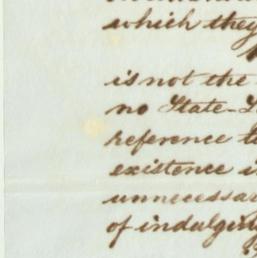 which they
is not the
no State-
reference to
existence i
unnecessar
of indulging